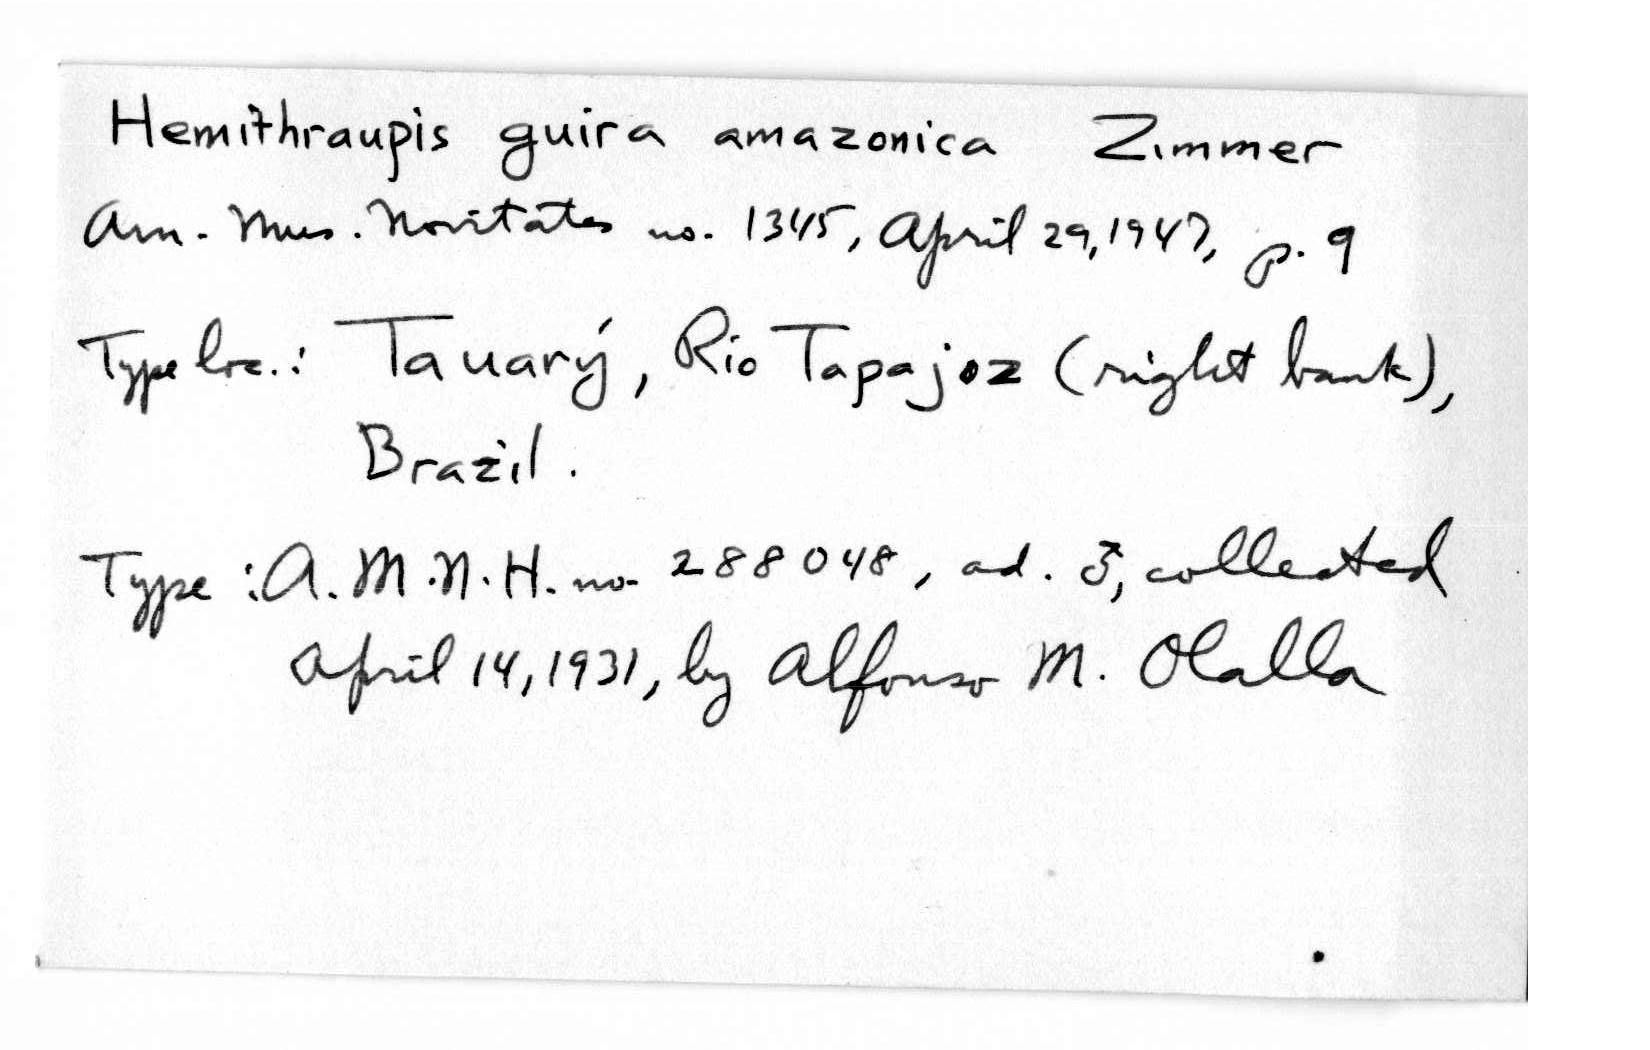 Hemithraupis guira amazonica Zimmer
Am. Mus. Novitates no. 1345, April 29, 1947, p. 9
Type loc.: Tauarý, Rio Tapajoz (right bank),
Brazil.
Type: A.M.N.H. no. 288048, ad. ♂, collected
April 14, 1931, by Alfonso M. Olalla